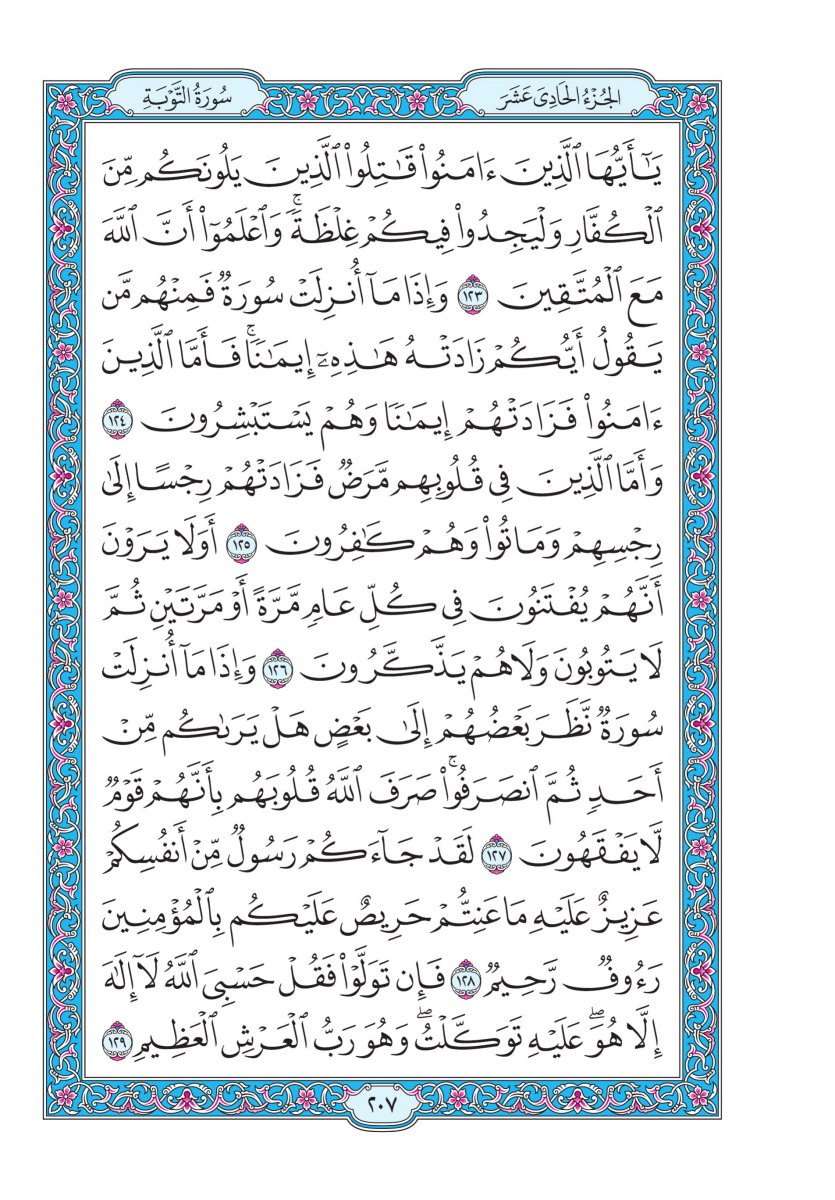 الجُزْءُ الحَادِىَ عَشَرَ
سُورَةُ التَّوْبَةِ
يَٰٓأَيُّهَا ٱلَّذِينَ ءَامَنُوا۟ قَٰتِلُوا۟ ٱلَّذِينَ يَلُونَكُم مِّنَ
ٱلْكُفَّارِ وَلْيَجِدُوا۟ فِيكُمْ غِلْظَةً ۚ وَٱعْلَمُوٓا۟ أَنَّ ٱللَّهَ
مَعَ ٱلْمُتَّقِينَ ١٢٣ وَإِذَا مَآ أُنزِلَتْ سُورَةٌ فَمِنْهُم مَّن
يَقُولُ أَيُّكُمْ زَادَتْهُ هَٰذِهِۦٓ إِيمَٰنًا ۚ فَأَمَّا ٱلَّذِينَ
ءَامَنُوا۟ فَزَادَتْهُمْ إِيمَٰنًا وَهُمْ يَسْتَبْشِرُونَ ١٢٤
وَأَمَّا ٱلَّذِينَ فِى قُلُوبِهِم مَّرَضٌ فَزَادَتْهُمْ رِجْسًا إِلَىٰ
رِجْسِهِمْ وَمَاتُوا۟ وَهُمْ كَٰفِرُونَ ١٢٥ أَوَلَا يَرَوْنَ
أَنَّهُمْ يُفْتَنُونَ فِى كُلِّ عَامٍ مَّرَّةً أَوْ مَرَّتَيْنِ ثُمَّ
لَا يَتُوبُونَ وَلَا هُمْ يَذَّكَّرُونَ ١٢٦ وَإِذَا مَآ أُنزِلَتْ
سُورَةٌ نَّظَرَ بَعْضُهُمْ إِلَىٰ بَعْضٍ هَلْ يَرَىٰكُم مِّنْ
أَحَدٍ ثُمَّ ٱنصَرَفُوا۟ ۚ صَرَفَ ٱللَّهُ قُلُوبَهُم بِأَنَّهُمْ قَوْمٌ
لَّا يَفْقَهُونَ ١٢٧ لَقَدْ جَآءَكُمْ رَسُولٌ مِّنْ أَنفُسِكُمْ
عَزِيزٌ عَلَيْهِ مَا عَنِتُّمْ حَرِيصٌ عَلَيْكُم بِٱلْمُؤْمِنِينَ
رَءُوفٌ رَّحِيمٌ ١٢٨ فَإِن تَوَلَّوْا۟ فَقُلْ حَسْبِىَ ٱللَّهُ لَآ إِلَٰهَ
إِلَّا هُوَ ۖ عَلَيْهِ تَوَكَّلْتُ ۖ وَهُوَ رَبُّ ٱلْعَرْشِ ٱلْعَظِيمِ ١٢٩
٢٠٧